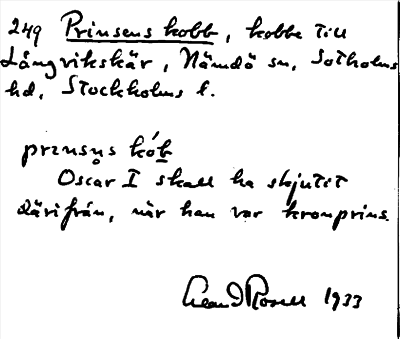 249 Prinsens kobb, kobbe till
Långvikskär, Nämdö sn, Sotholms
hd, Stockholms l.
prɪnsn̥s kób
Oscar I skall ha skjutit
därifrån, när han var kronprins.
1933